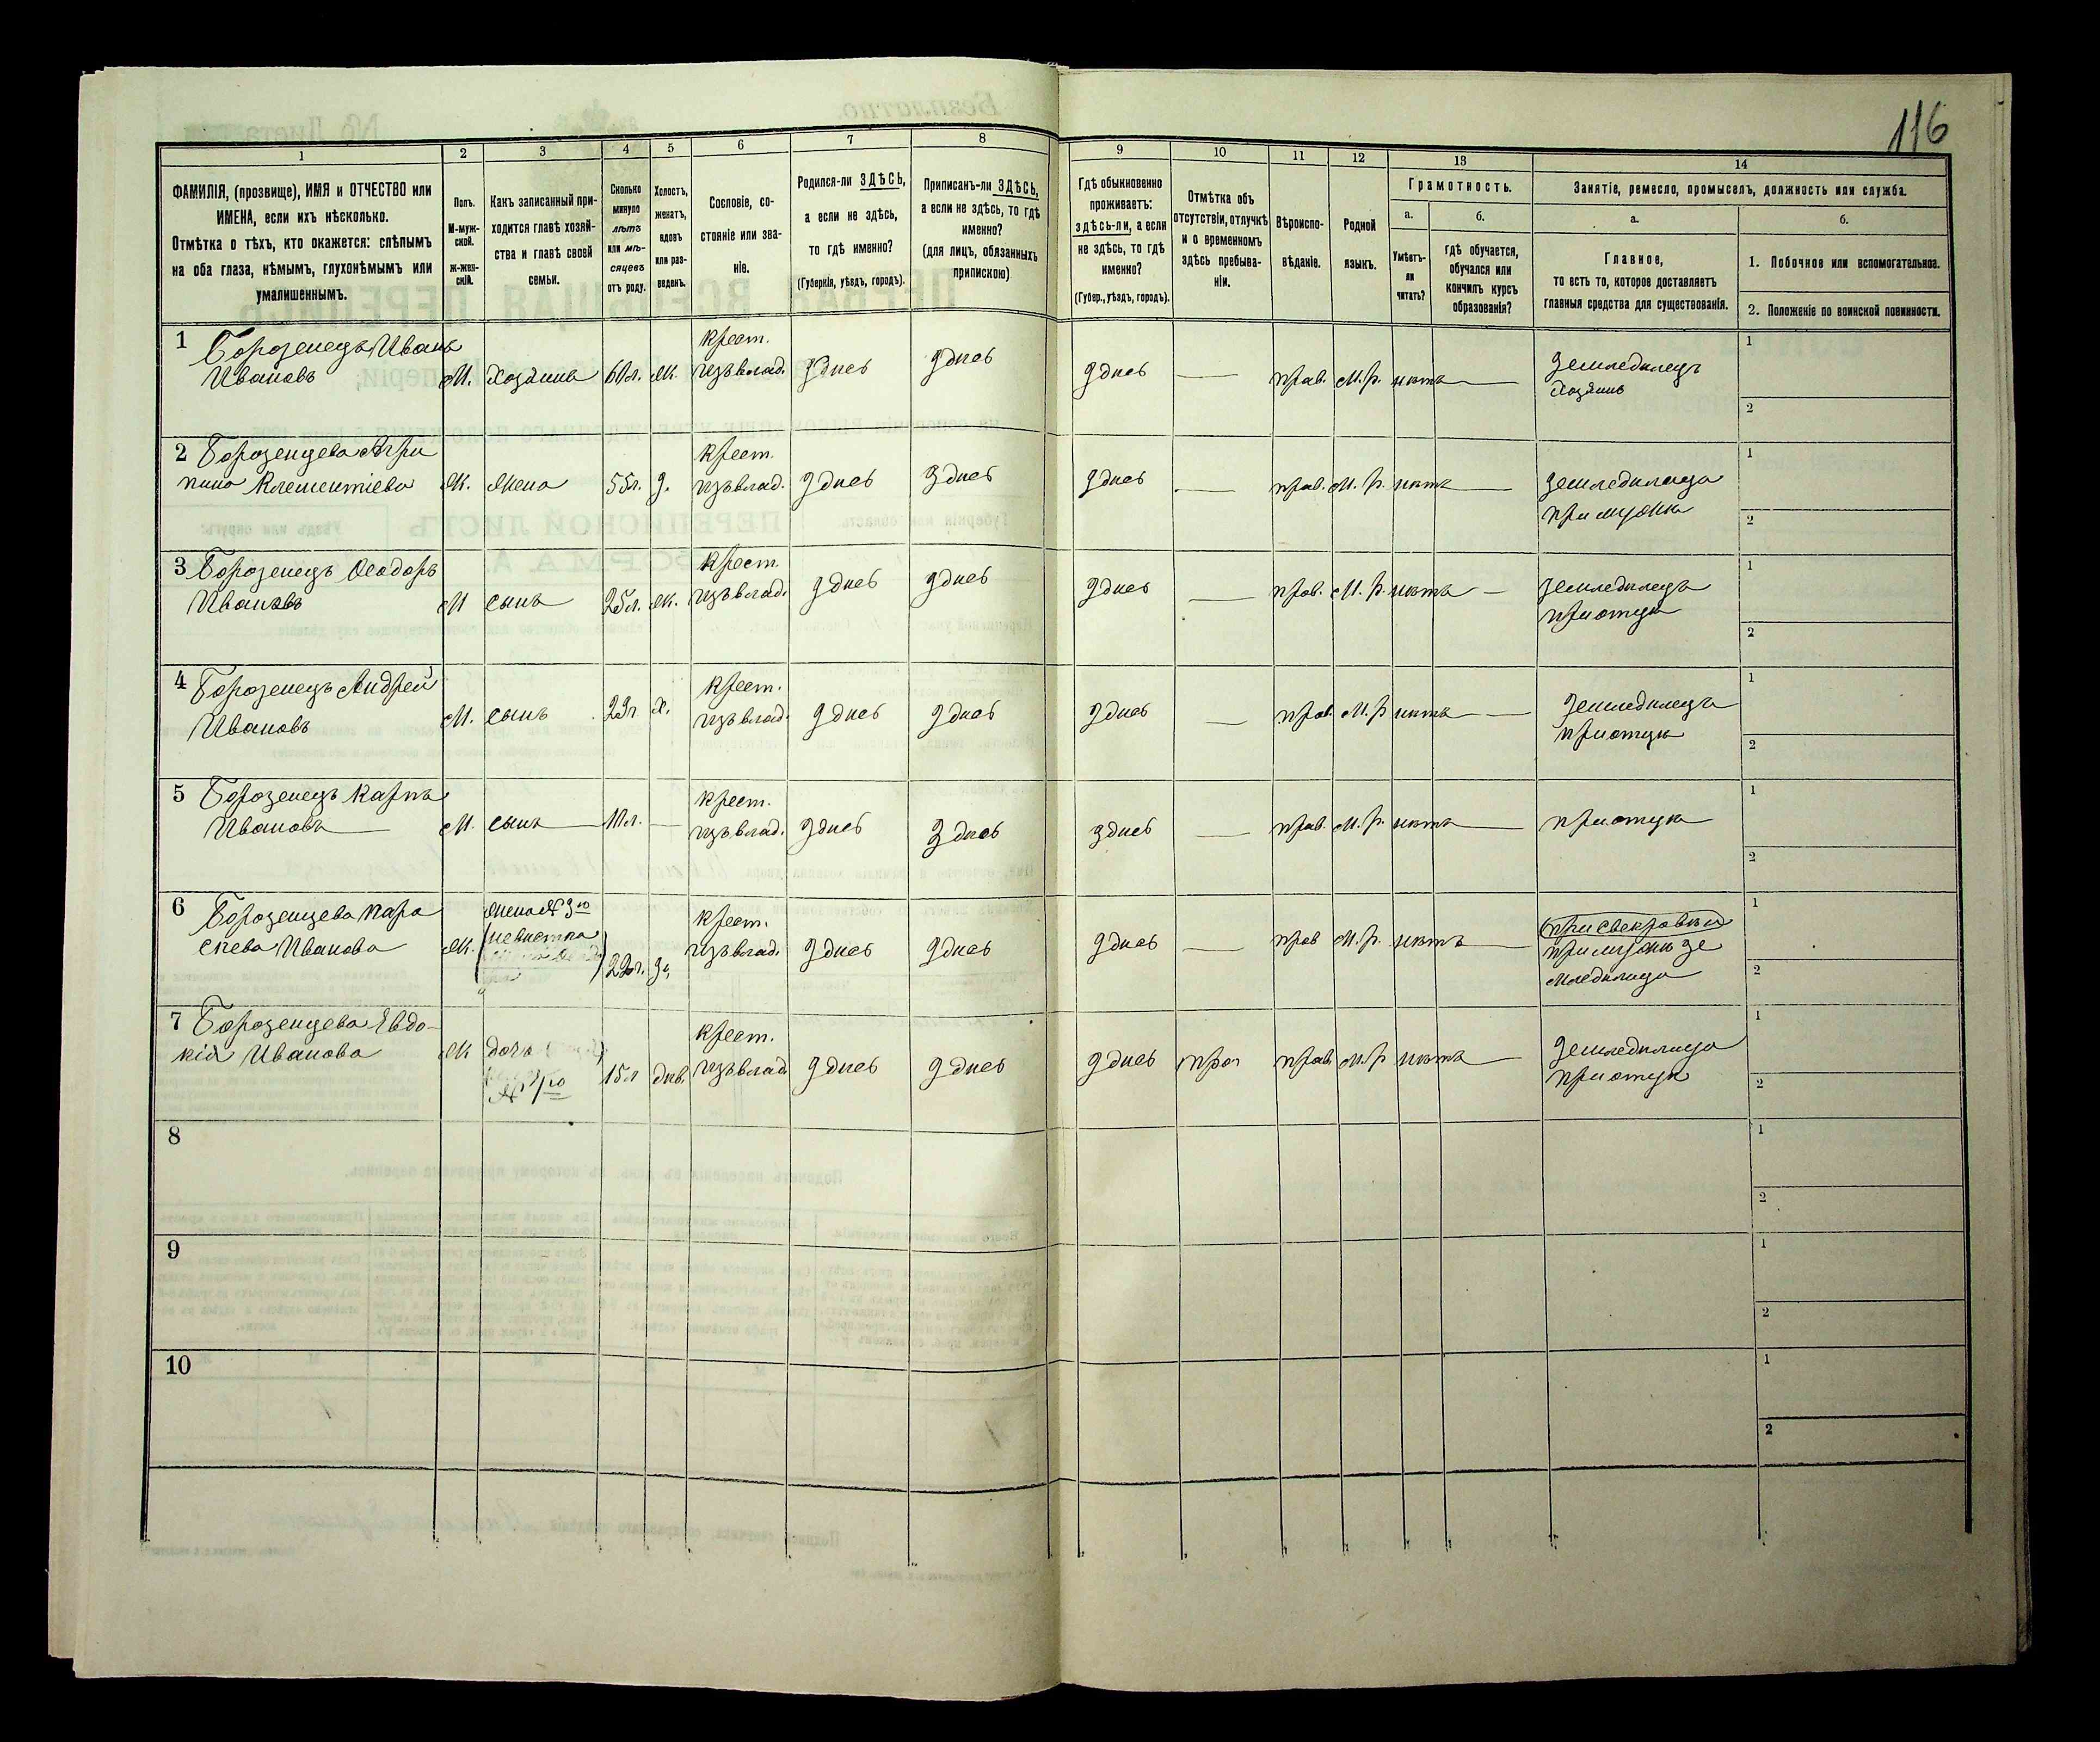 116
1
2
3
4
5
6
7
8
9
10
11
12
13
14
ФАМИЛІЯ, (прозвище), ИМЯ и ОТЧЕСТВО или
ИМЕНА, если ихъ нѣсколько.
Отмѣтка о тѣхъ, кто окажется: слѣпымъ
на оба глаза, нѣмымъ, глухонѣмымъ или
умалишеннымъ.
Полъ.
М-муж-
ской.
ж-жен-
скій.
Какъ записанный при-
ходится главѣ хозяй-
ства и главѣ своей
семьи.
Сколько
минуло
лѣтъ
или мѣ-
сяцевъ
отъ роду.
Холостъ,
женатъ,
вдовъ
или раз-
веденъ.
Сословіе, со-
стояніе или зва-
ніе.
Родился-ли ЗДѢСЬ,
а если не здѣсь,
то гдѣ именно?
(Губернія, уѣздъ, городъ).
Приписанъ-ли ЗДѢСЬ,
а если не здѣсь, то гдѣ
именно?
(для лицъ, обязанныхъ
припискою)
Гдѣ обыкновенно
проживаетъ:
здѣсь-ли, а если
не здѣсь, то гдѣ
именно?
(Губер., уѣздъ, городъ).
Отмѣтка объ
отсутствіи, отлучкѣ
и о временномъ
здѣсь пребыва-
ніи.
Вѣроиспо-
вѣданіе.
Родной
языкъ.
Грамотность.
а.
Умѣетъ-
ли
читать?
б.
гдѣ обучается,
обучался или
кончилъ курсъ
образованія?
Занятіе, ремесло, промыселъ, должность или служба.
а.
Главное,
то есть то, которое доставляетъ
главныя средства для существованія.
б.
1. Побочное или вспомогательное.
2. Положеніе по воинской повинности.
1 Борозенецъ Иванъ
Ивановъ
М. Хозяинъ 60л. ж. крест.
изъ влад. здѣсь здѣсь здѣсь — прав. М.р. нѣтъ — земледѣлецъ
Хозяинъ
1
2
2 Борозенцева Агри
пина Клементіева
Ж. жена 55л. з. крест.
изъ влад. здѣсь здѣсь здѣсь — прав. М.р. нѣтъ — земледѣлица
при мужѣ
1
2
3 Борозенецъ Ѳеодоръ
Ивановъ
М сынъ 25л. ж. крест.
изъ влад. здѣсь здѣсь здѣсь — прав. М.р. нѣтъ — земледѣлецъ
при отцѣ
1
2
4 Борозенецъ Андрей
Ивановъ
М. сынъ 23г х. крест.
изъ влад. здѣсь здѣсь здѣсь — прав. М.р нѣтъ — земледѣлецъ
при отцѣ
1
2
5 Борозенецъ Карпъ
Ивановъ
М. сынъ — 10л. — крест.
изъ влад. здѣсь здѣсь здѣсь — прав. М.р. нѣтъ — при отцѣ
1
2
6 Борозенцева Пара
скева Иванова
Ж. жена № 3го
(невѣстка
22г. з. крест.
изъ влад. здѣсь здѣсь здѣсь — прав М.р. нѣтъ — при свекровѣи
при мужѣ зе
мледѣлица
1
2
7 Борозенцева Евдо-
кія Иванова
Ж дочь 15л дѣв. крест.
изъ влад здѣсь здѣсь здѣсь прав. М.р нѣтъ — земледѣлица
при отцѣ
1
2
8
1
2
9
1
2
10
1
2